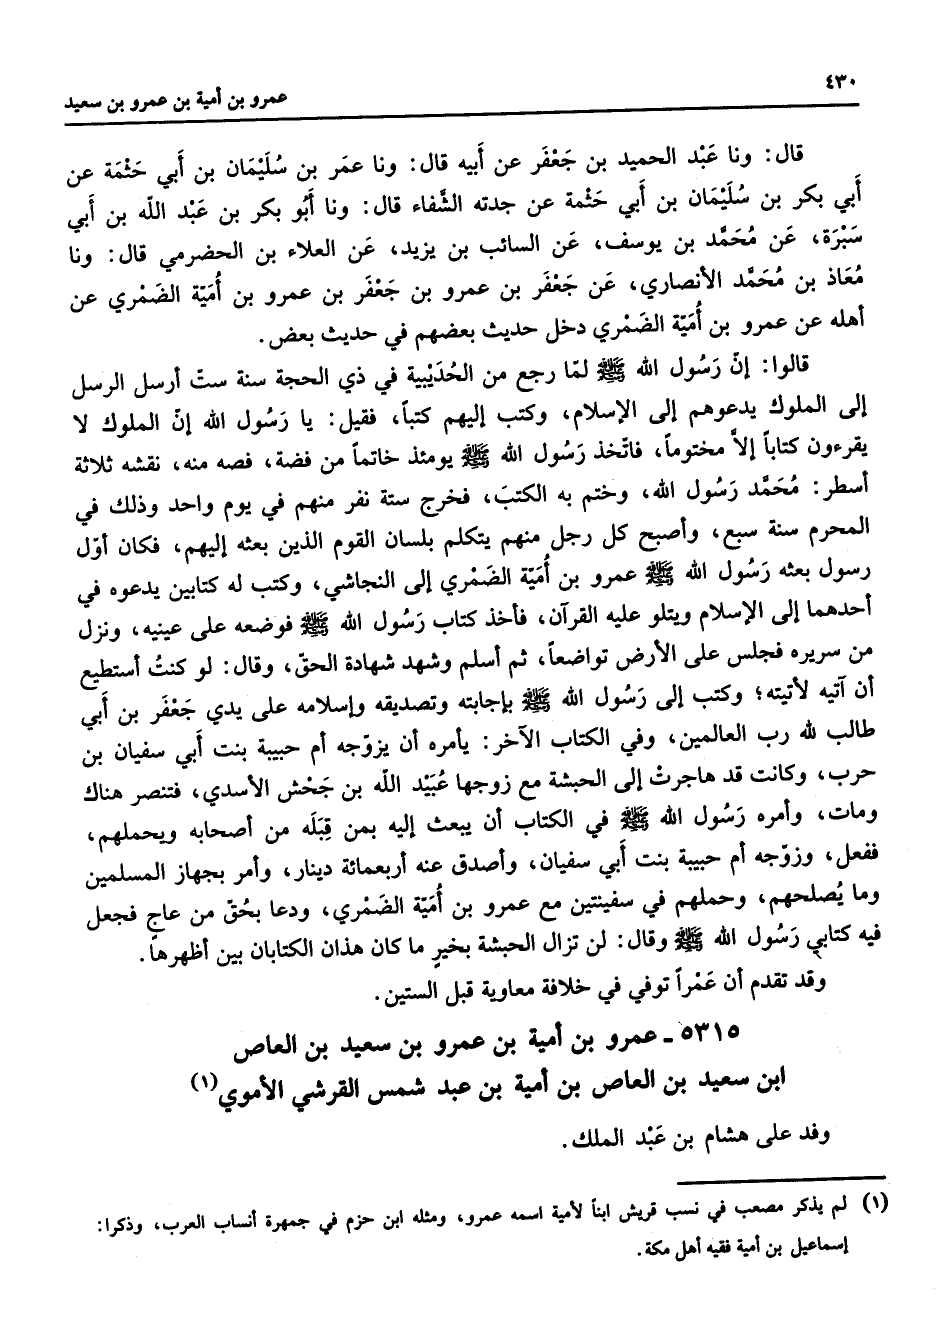 ٤٣٠
عمرو بن أمية بن عمرو بن سعيد
قال: ونا عَبْد الحميد بن جَعْفَر عن أَبيه قال: ونا عمَر بن سُلَيْمَان بن أَبي حَثْمَة عن
أَبي بكر بن سُلَيْمَان بن أَبي حَثْمة عن جدته الشَّفاء قال: ونا أَبُو بكر بن عَبْد اللّه بن أَبي
سَبْرَة، عَن مُحَمَّد بن يوسف، عَن السائب بن يزيد، عَن العلاء بن الحضرمي قال: ونا
مُعَاذ بن مُحَمَّد الأنصاري، عَن جَعْفَر بن عمرو بن جَعْفَر بن عمرو بن أُمَيّة الضَمْري عن
أهله عن عمرو بن أُمَيّة الضَمْري دخل حديث بعضهم في حديث بعض.
قالوا: إنّ رَسُول الله ﷺ لمّا رجع من الحُدَيْبية في ذي الحجة سنة ستّ أرسل الرسل
إلى الملوك يدعوهم إلى الإسلام، وكتب إليهم كتباً، فقيل: يا رَسُول الله إنّ الملوك لا
يقرءون كتاباً إلاَّ مختوماً، فاتّخذ رَسُول الله ﷺ يومئذ خاتماً من فضة، فصه منه، نقشه ثلاثة
أسطر: مُحَمَّد رَسُول الله، وختم به الكتبَ، فخرج ستة نفر منهم في يوم واحد وذلك في
المحرم سنة سبع، وأصبح كل رجل منهم يتكلم بلسان القوم الذين بعثه إليهم، فكان أوّل
رسول بعثه رَسُول الله ﷺ عمرو بن أُمَيّة الضَمْري إلى النجاشي، وكتب له كتابين يدعوه في
أحدهما إلى الإسلام ويتلو عليه القرآن، فأخذ كتاب رَسُول الله ﷺ فوضعه على عينيه، ونزل
من سريره فجلس على الأرض تواضعاً، ثم أسلم وشهد شهادة الحقّ، وقال: لو كنتُ أستطيع
أن آتيه لأتيته؛ وكتب إلى رَسُول الله ﷺ بإجابته وتصديقه وإسلامه على يدي جَعْفَر بن أَبي
طالب لله رب العالمين، وفي الكتاب الآخر: يأمره أن يزوّجه أم حبيبة بنت أَبي سفيان بن
حرب، وكانت قد هاجرتْ إلى الحبشة مع زوجها عُبَيْد اللّه بن جَحْش الأسدي، فتنصر هناك
ومات، وأمره رَسُول الله ﷺ في الكتاب أن يبعث إليه بمن قِبَلَه من أصحابه ويحملهم،
ففعل، وزوّجه أم حبيبة بنت أَبي سفيان، وأصدق عنه أربعمائة دينار، وأمر بجهاز المسلمين
وما يُصلحهم، وحملهم في سفينتين مع عمرو بن أُمَيّة الضَمْري، ودعا بحُقّ من عاج فجعل
فيه كتابي رَسُول الله ﷺ وقال: لن تزال الحبشة بخيرٍ ما كان هذان الكتابان بين أظهرها.
وقد تقدم أن عَمْراً توفي في خلافة معاوية قبل الستين.
٥٣١٥ ـ عمرو بن أمية بن عمرو بن سعيد بن العاص
ابن سعيد بن العاص بن أمية بن عبد شمس القرشي الأموي(١)
وفد على هشام بن عَبْد الملك.
(١) لم يذكر مصعب في نسب قريش ابناً لأمية اسمه عمرو، ومثله ابن حزم في جمهرة أنساب العرب، وذكرا:
إسماعيل بن أمية فقيه أهل مكة.